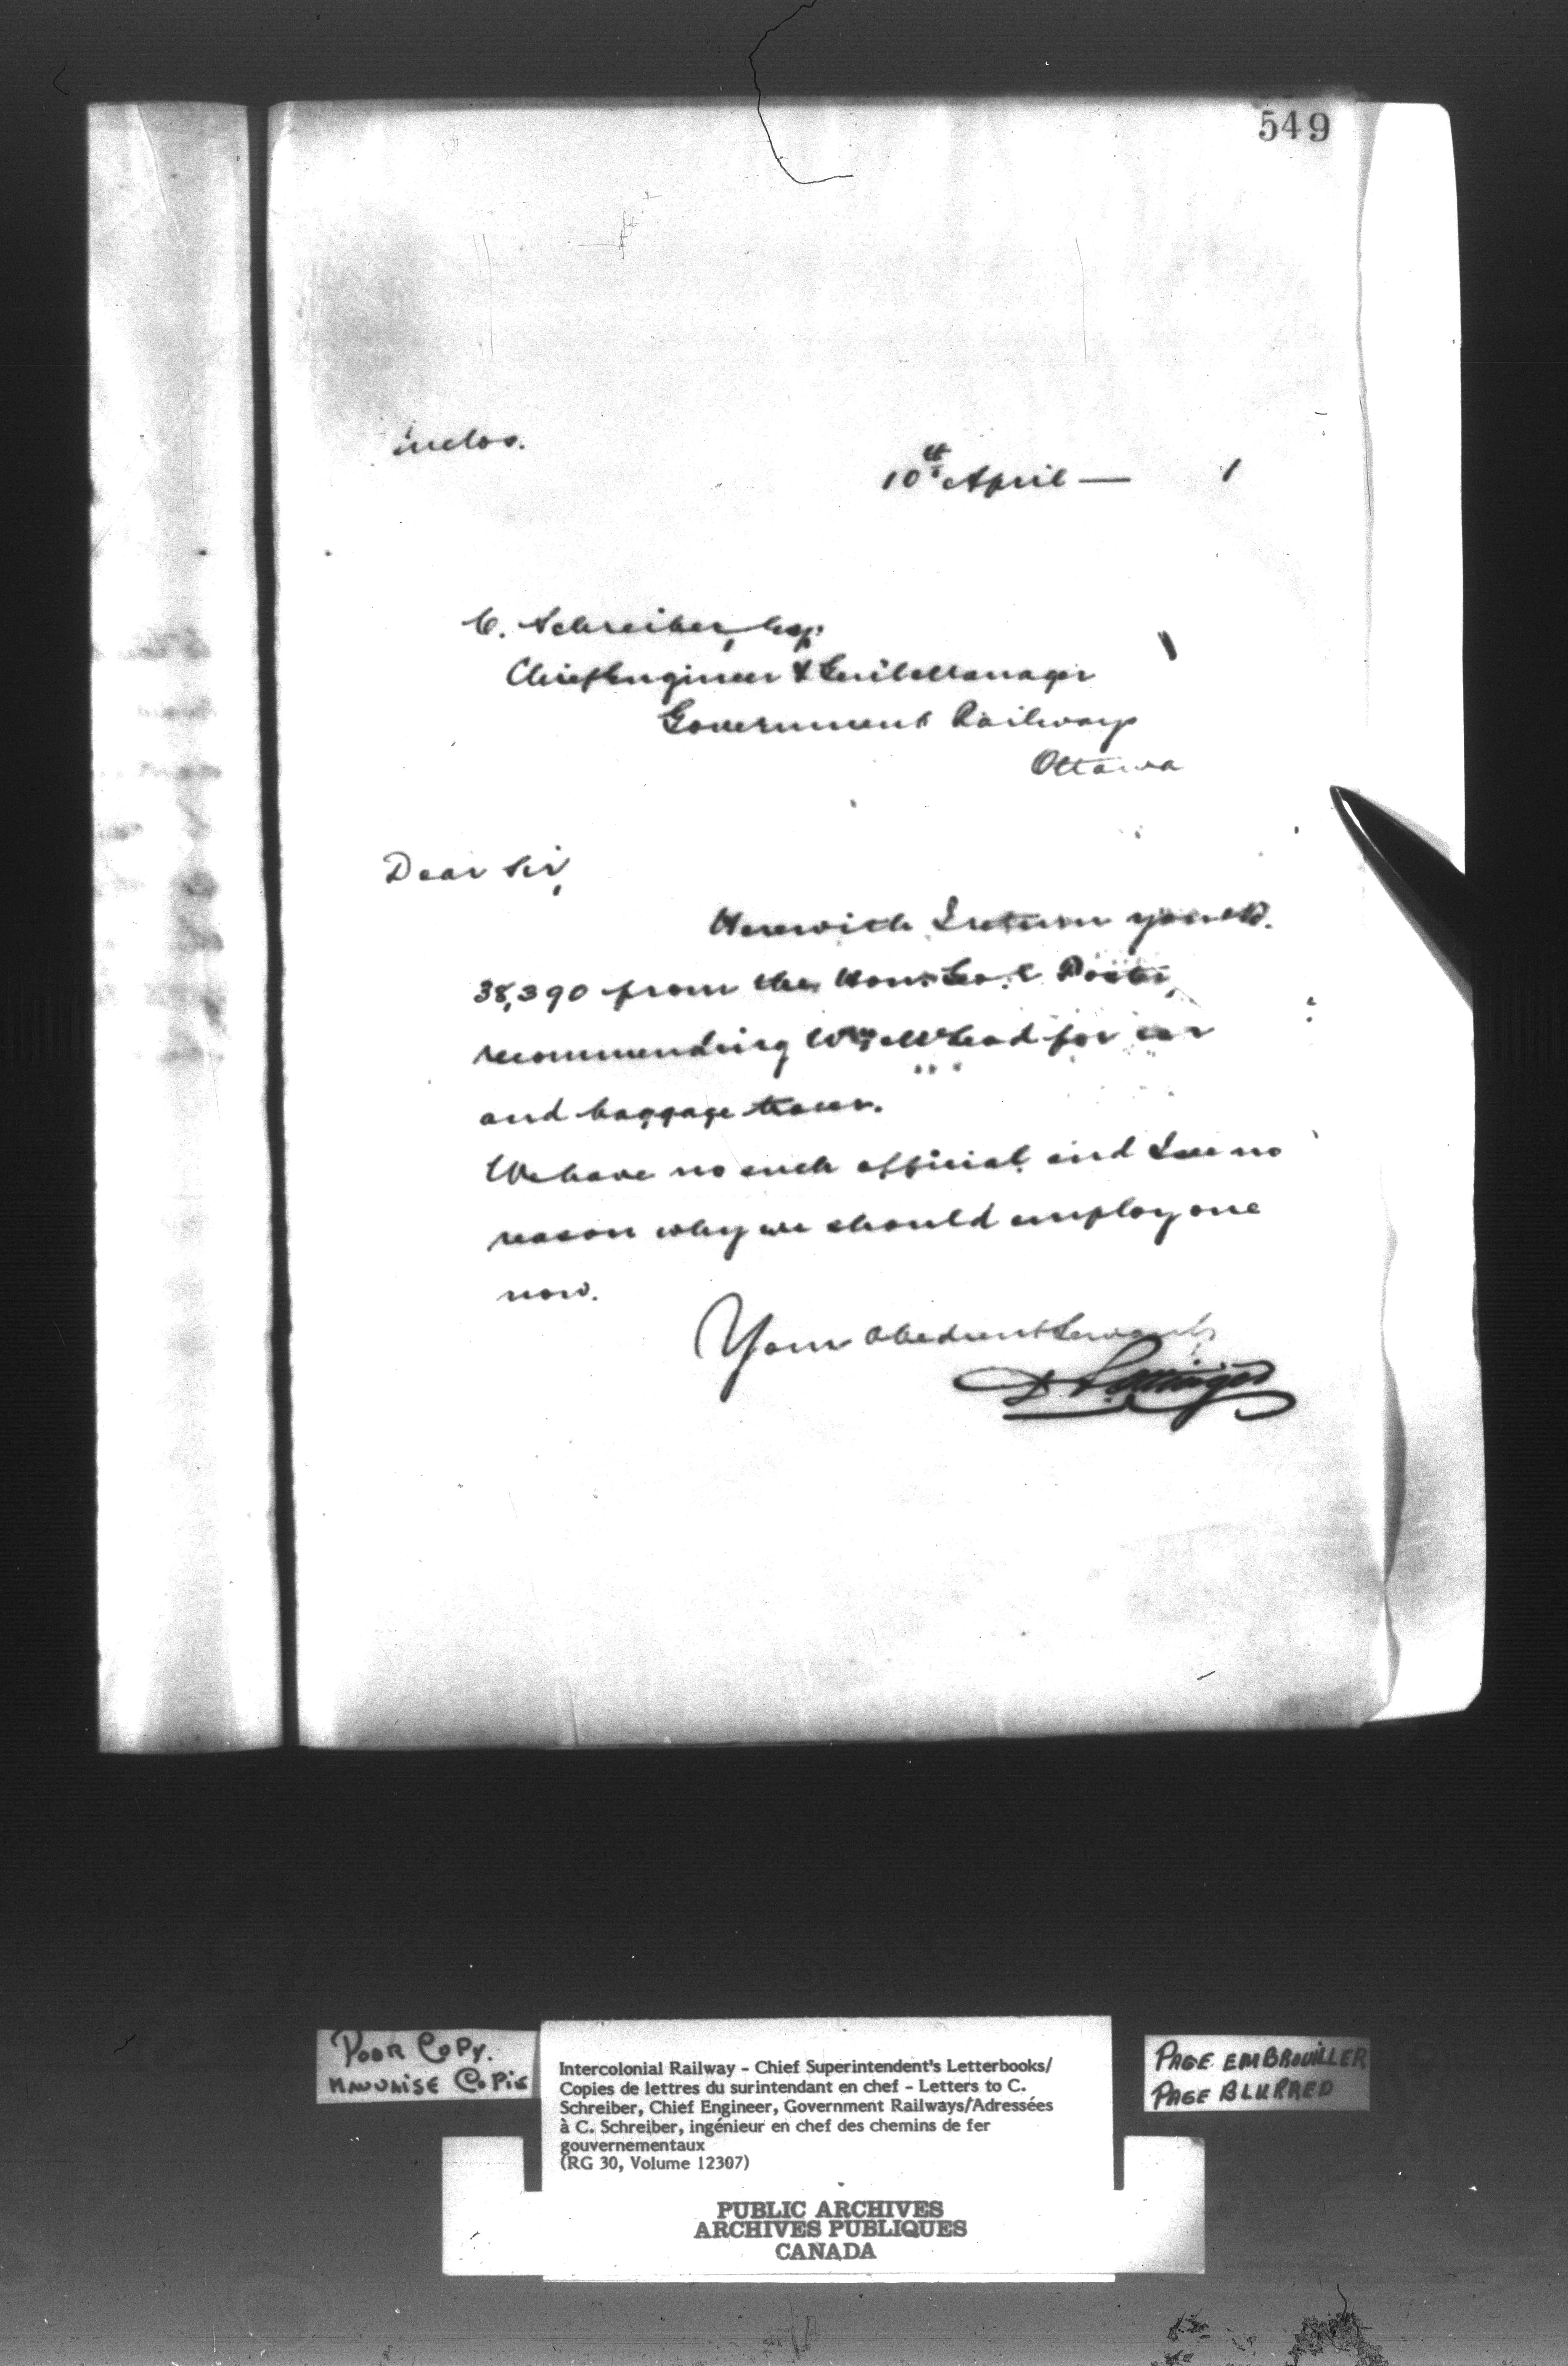 549
inclos.
10th April — 1
C. Schreiber, Esq.
Chief Engineer & Genl Manager
Government Railways
Ottawa
Dear Sir,
Herewith I return your
38,390 from the Hon. Geo. E. Foster
recommending Wm. McLeod for car
and baggage tracer.
We have no such official and I see no
reason why we should employ one
now.
Your Obedient Servant
D Pottinger
POOR COPY.
MAUVAISE COPIE
Intercolonial Railway - Chief Superintendent's Letterbooks/
Copies de lettres du surintendant en chef - Letters to C.
Schreiber, Chief Engineer, Government Railways/Adressées
à C. Schreiber, ingénieur en chef des chemins de fer
gouvernementaux
(RG 30, Volume 12307)
PAGE EMBROUILLER
PAGE BLURRED
PUBLIC ARCHIVES
ARCHIVES PUBLIQUES
CANADA